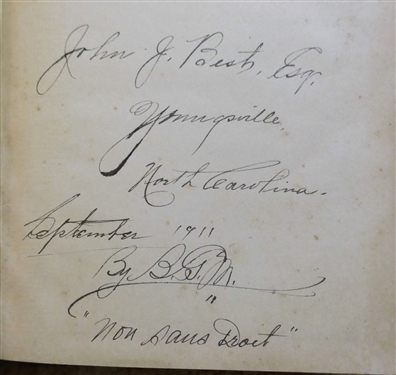 John J. Best, Esq.
Youngsville,
North Carolina.
September 1911
By B.G.M.
"Non sans Droit"